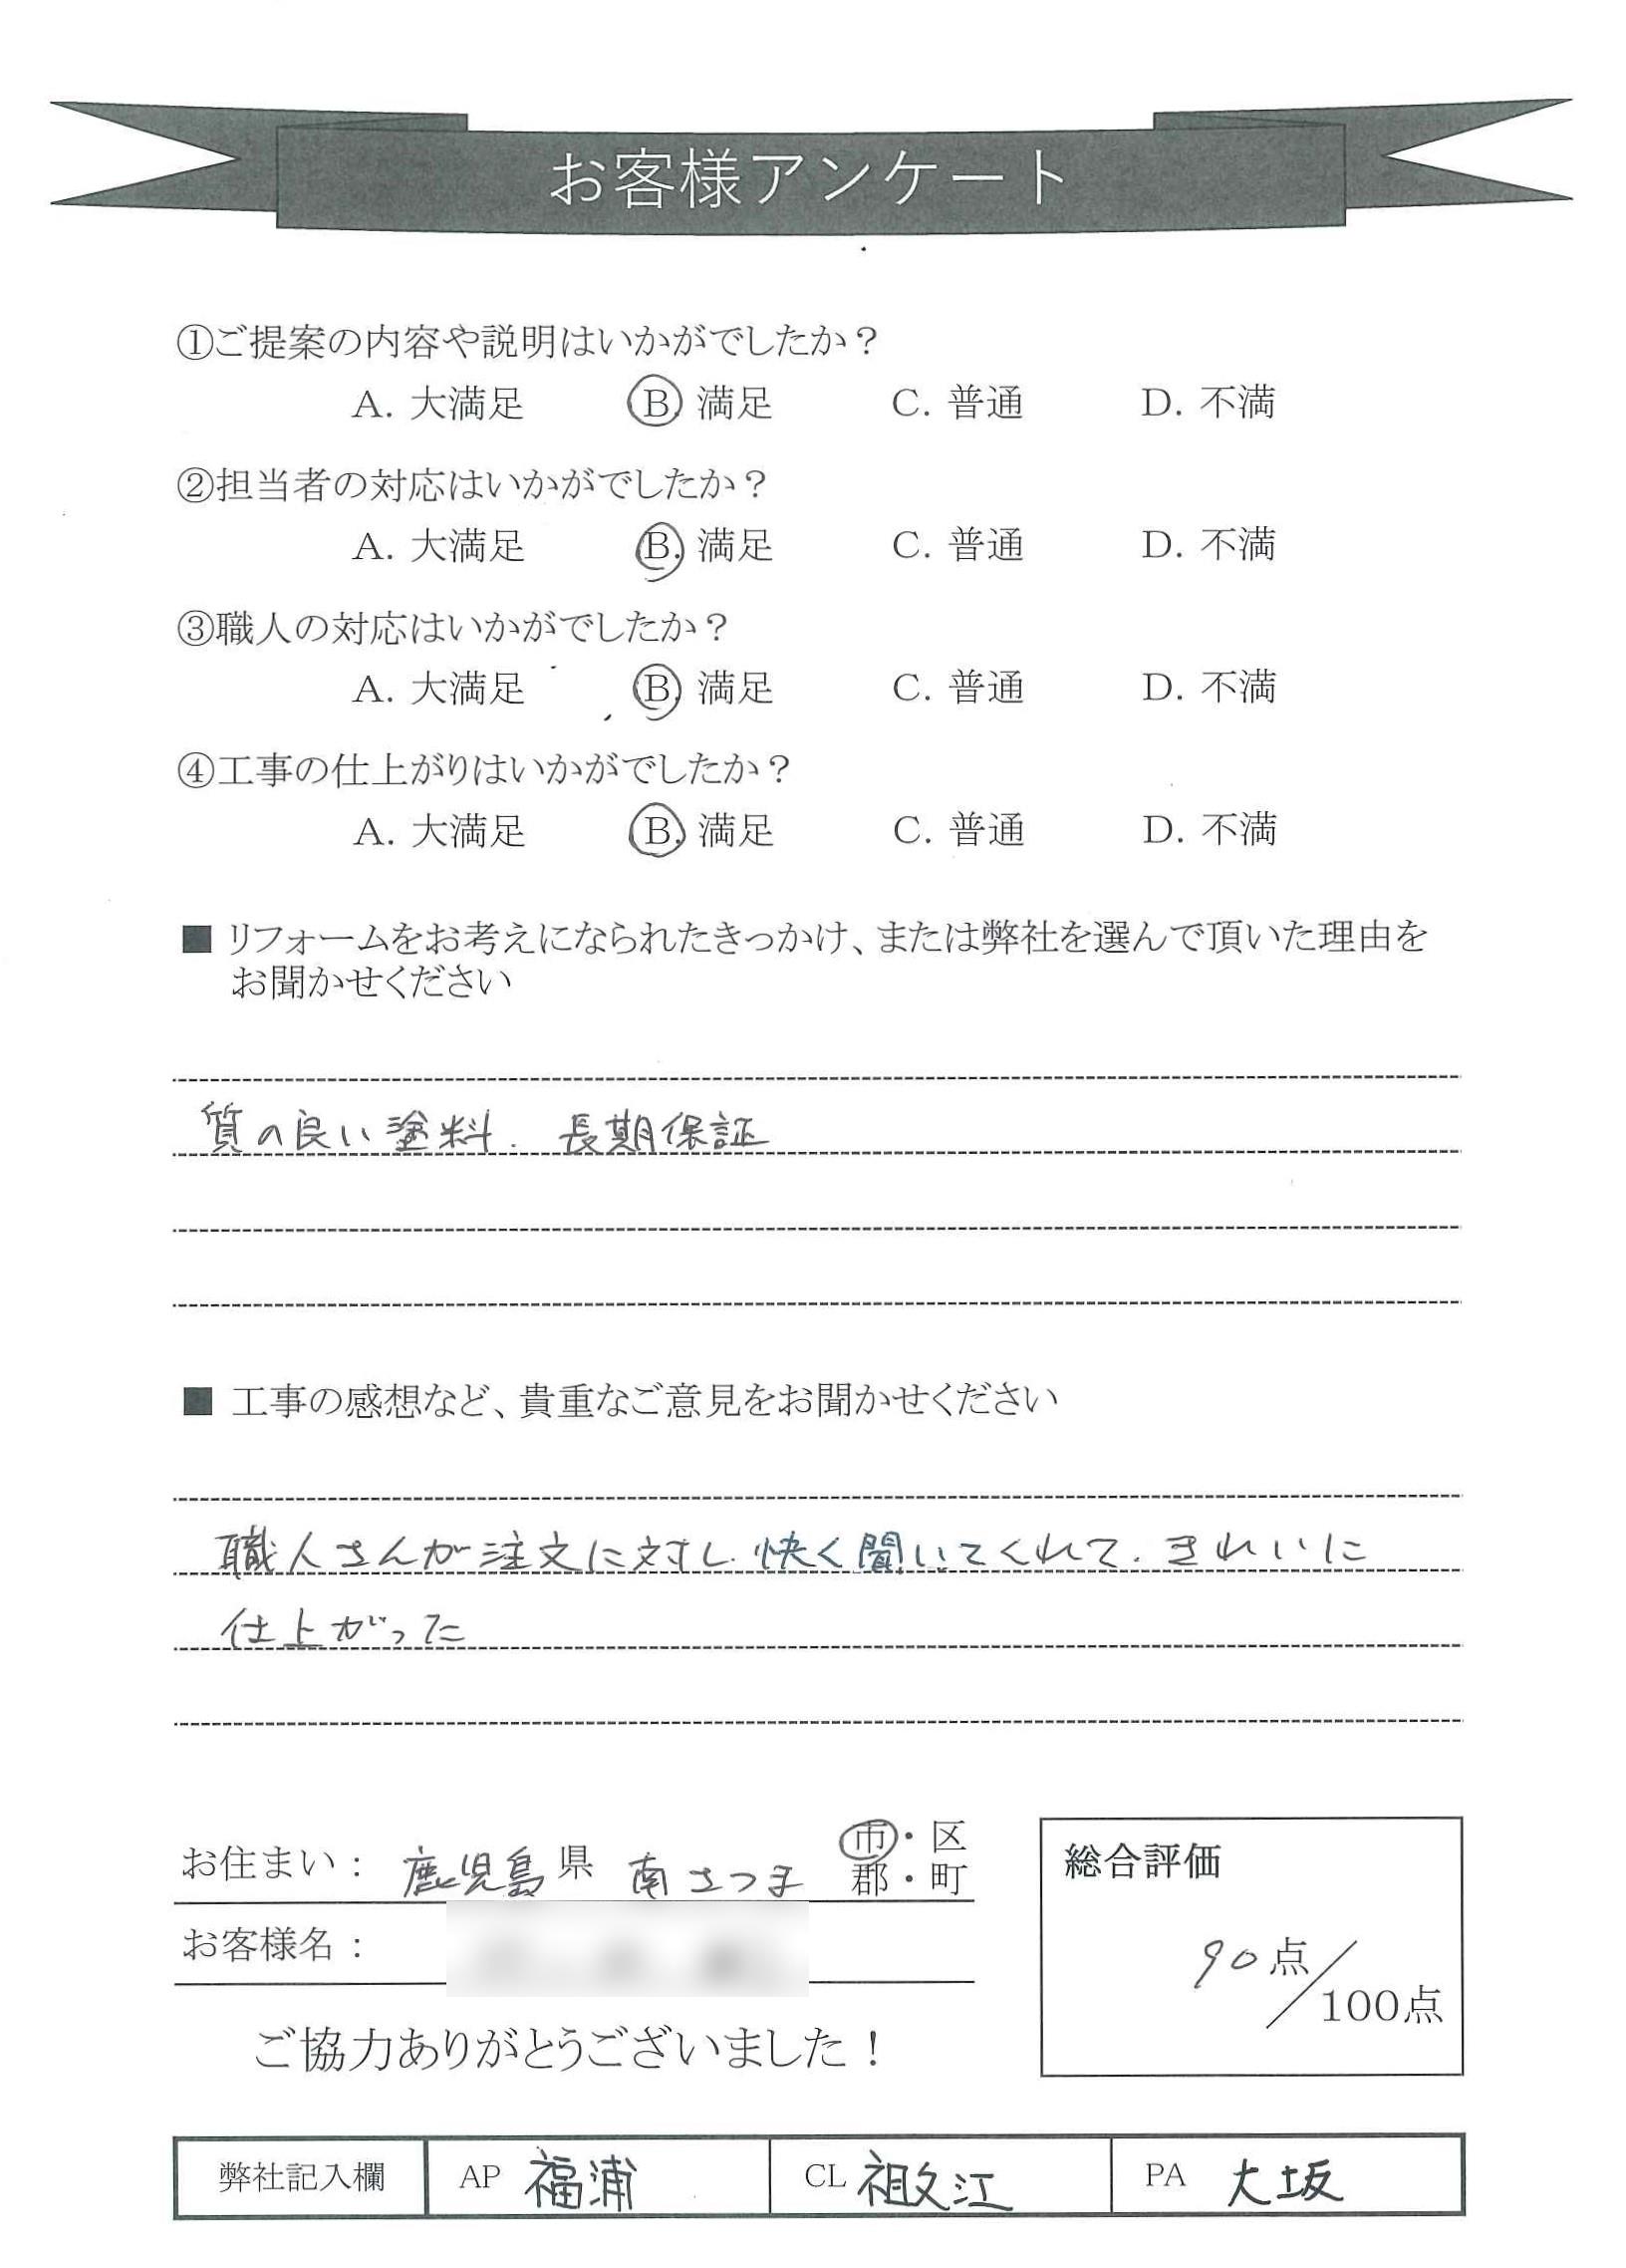 お客様アンケート
①ご提案の内容や説明はいかがでしたか？
A. 大満足 B. 満足 C. 普通 D. 不満
②担当者の対応はいかがでしたか？
A. 大満足 B. 満足 C. 普通 D. 不満
③職人の対応はいかがでしたか？
A. 大満足 B. 満足 C. 普通 D. 不満
④工事の仕上がりはいかがでしたか？
A. 大満足 B. 満足 C. 普通 D. 不満
■ リフォームをお考えになられたきっかけ、または弊社を選んで頂いた理由を
お聞かせください
質の良い塗料. 長期保証
■ 工事の感想など、貴重なご意見をお聞かせください
職人さんが注文に対し.快く聞いてくれて.きれいに
仕上がった
お住まい： 鹿児島 県 南さつま 市・区
郡・町
お客様名：
総合評価
90点／100点
ご協力ありがとうございました！
弊社記入欄 AP 福浦 CL 祖父江 PA 大坂